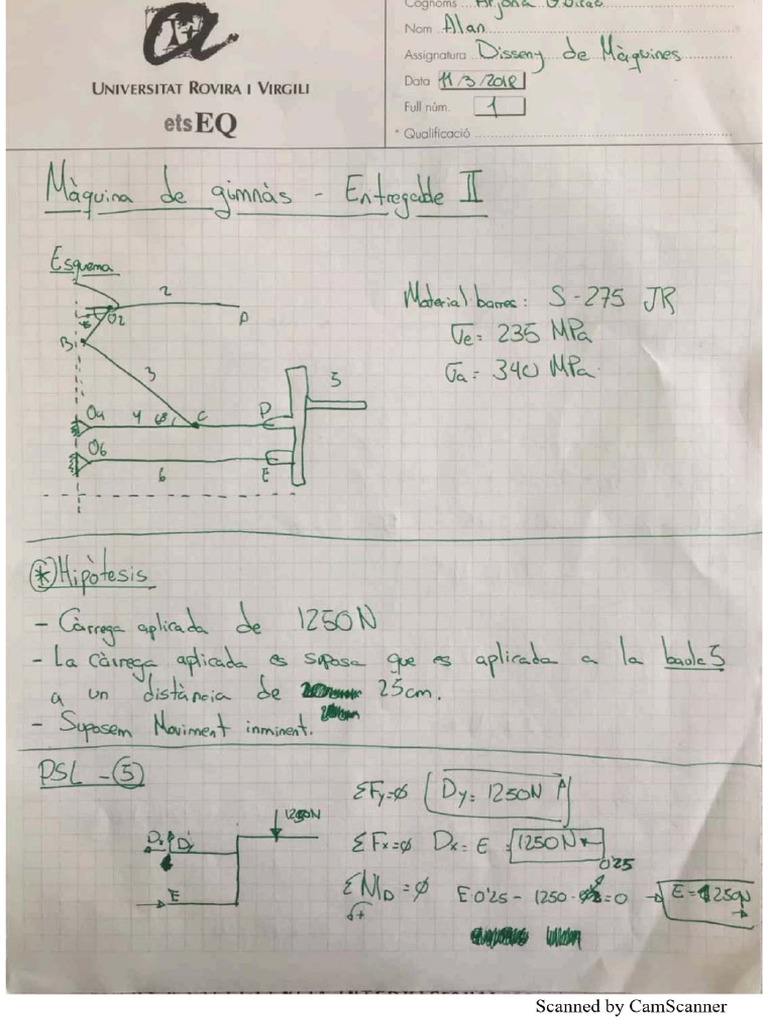 Cognoms
Nom Alan
Assignatura Disseny de Màquines
Data 11/3/2018
Full núm. 1
* Qualificació
UNIVERSITAT ROVIRA I VIRGILI
etsEQ
Màquina de gimnàs - Entregable II
Esquema
2
O2
P
B
3
O4 4 C D
5
O6
6 E
Material barres: S-275 JR
σe = 235 MPa
σa = 340 MPa
* Hipòtesis
- Càrrega aplicada de 1250N
- La càrrega aplicada es suposa que es aplicada a la baula 5
a un distància de 25cm.
- Suposem Moviment inminent.
DSL - 5
1250N
Dx Dy
E
ΣFy=∅ Dy = 1250N
ΣFx=∅ Dx = E = 1250N
ΣMD = ∅ E·0'25 - 1250 · 0'25 = 0 → E = 1250N
Scanned by CamScanner